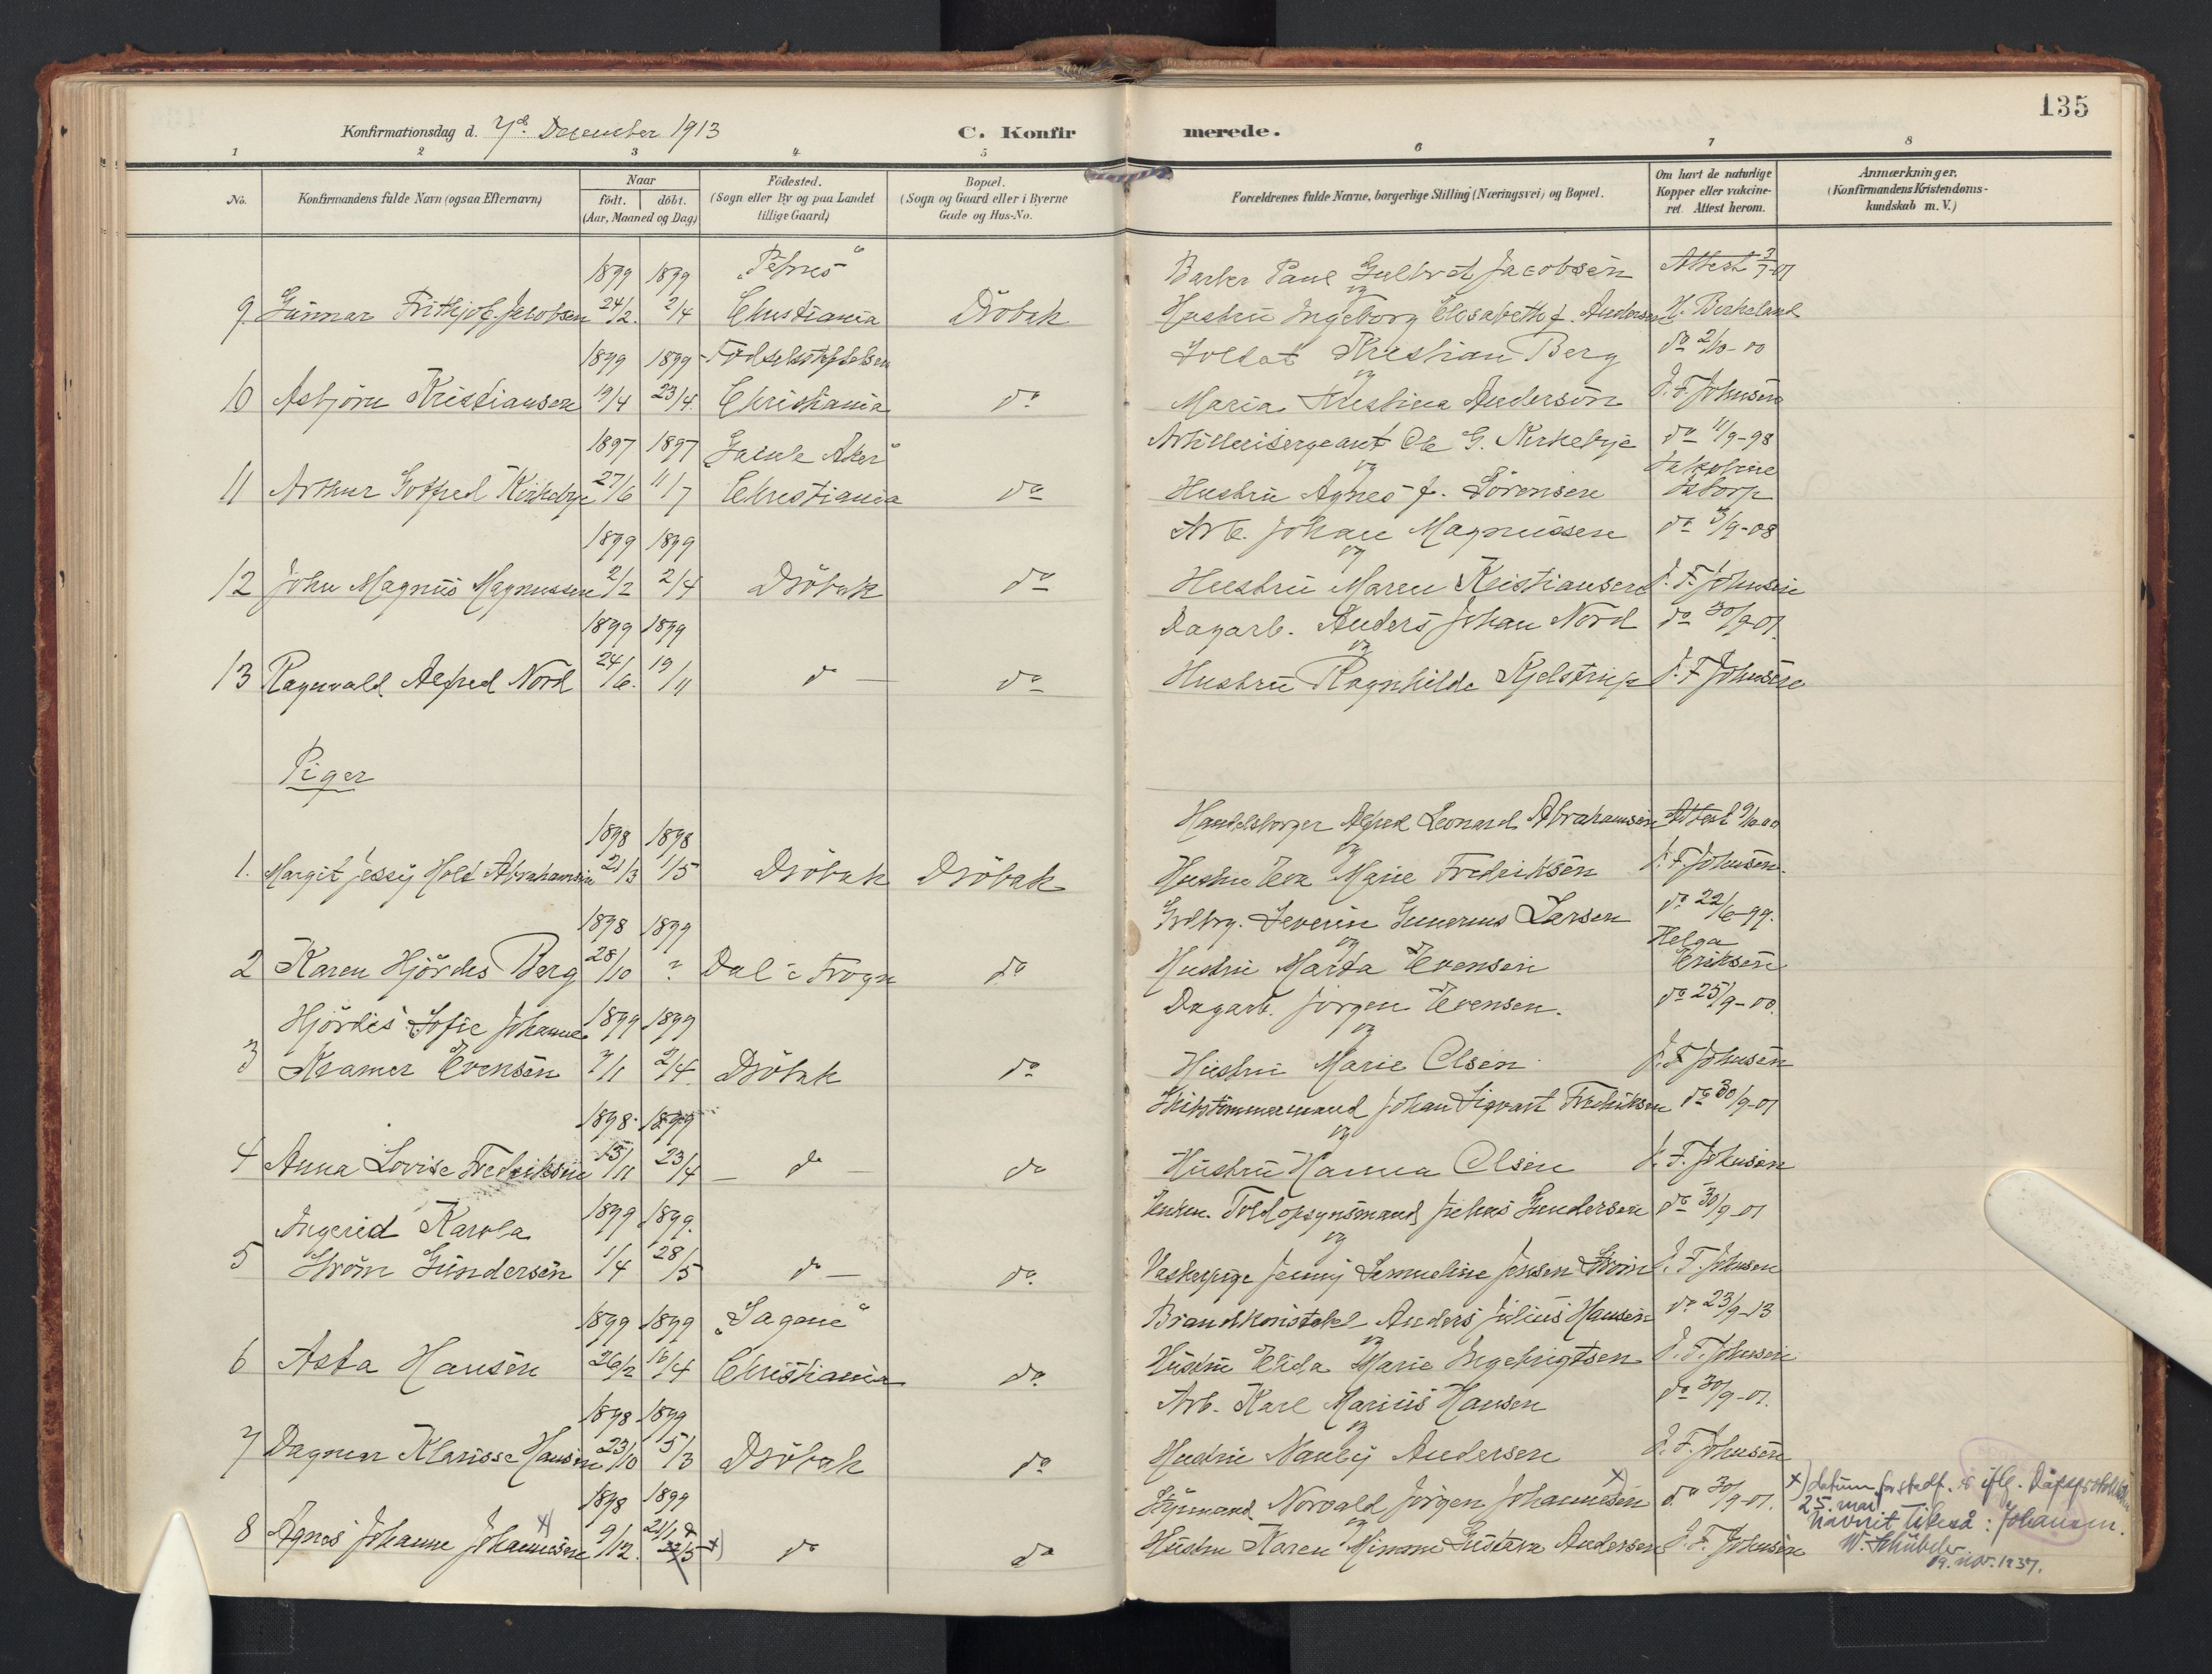 135
Konfirmationsdag d. 7de December 1913 C. Konfirmerede.
1 2 3 4 5 6 7 8
No. Konfirmandens fulde Navn (ogsaa Efternavn) Naar født. døbt. (Aar, Maaned og Dag) Födested. (Sogn eller By og paa Landet tillige Gaard) Bopæl. (Sogn og Gaard eller i Byerne Gade og Hus-No. Forældrenes fulde Navne, borgerlige Stilling (Næringsvei) og Bopæl. Om havt de naturlige Kopper eller vakcineret. Attest herom. Anmærkninger. (Konfirmandens Kristendomskundskab m. V.)
1899 1899 „Petrus“ Barber Paul Gulbrot Jacobsen Attest 3/7-01
9. Gunnar Frithjof Jacobsen 24/2. 2/4 Christiania Dröbak og Hustru Ingeborg Elisabeth f. Andersen H. Birkeland
1899 1899 Fødselsstiftelsen Soldat Kristian Berg do 2/10-00
10 Asbjørn Kristiansen 19/4 23/4. Christiania do og Maria Kristina Anderson J. F. Johnsen
1897 1897 Gamle Aker“ Artillerisergeant Ole G. Kirkebye do 11/9-98
11 Arthur Gotfred Kirkebye 27/6 11/7 Christiania do og Hustru Agnes f. Sörensen Jakobine
1899 1899 Arb. Johan Magnussen do 3/9-08
12 John Magnus Magnussen 2/2 2/4 Dröbak do og Hustru Maren Kristiansen J. F. Johnsen
1899 1899 Dagarb. Anders Johan Nord do 30/9-01.
13 Ragnvald Alfred Nord 24/6. 19/11 do — do og Hustru Ragnhilde Kjelstrup J. F. Johnsen
Piger
1898 1898 Handelsborger Alfred Leonard Abrahamsen Attest 9/10 00
1. Margit Jessy Hold Abrahamsen 21/3 1/5 Dröbak Dröbak og Hustru Eva Marie Fredriksen J. F. Johnsen.
1898 1899 Grdbrg. Severin Gunerius Larsen do 22/6-99.
2 Karen Hjördis Berg 28/10 ? Dal i Frogn do og Hustru Marta Evensen Helga Eriksen
Hjördis Sofie Johanne 1899 1899 Dagarb. Jörgen Evensen. do 25/9-00.
3 Kramer Evensen 7/1 2/4. Dröbak do og Hustru Marie Olsen J. F. Johnsen
1898. 1899 Skibstømmermand Johan Sigvart Fredriksen do 30/9-01
4 Anna Lovise Fredriksen 15/11 23/4 — do — do og Hustru Hanna Olsen J. F. Johnsen
Ingerid Karola 1899 1899. Enkem. Toldopsynsmand Julius Gundersen do 30/9-01
5 Ström Gundersen 1/4 28/5 do — do og Vaskepige Jenny Samueline Jensen Ström J. F. Johnsen
1899 1899 „Sagene“ Brandkonstabel Anders Julius Hansen do 23/9-13
6 Asta Hansen 26/2 16/4 Christiania do og Hustru Elida Marie Ingebrigtsen J. F. Johnsen
1898 1899 Arb. Karl Marius Hansen do 30/9-01.
7 Dagmar Klarisse Hansen 23/10 5/3 Dröbak do og Hustru Nanly Andersen J. F. Johnsen
1898 1899 Styrmand Norvald Jörgen Johannesen x) do 30/9-01. x) datum for stedf. is iflg. Dåpsprotokollen
25. mai
8 Agnes Johanne Johannesen x) 9/12. 21/5 x) do do og Hustru Karen Minom Gustava Andersen J. F. Johnsen navnet likeså: Johansen.
W. Schübeler
19. nov. 1937.